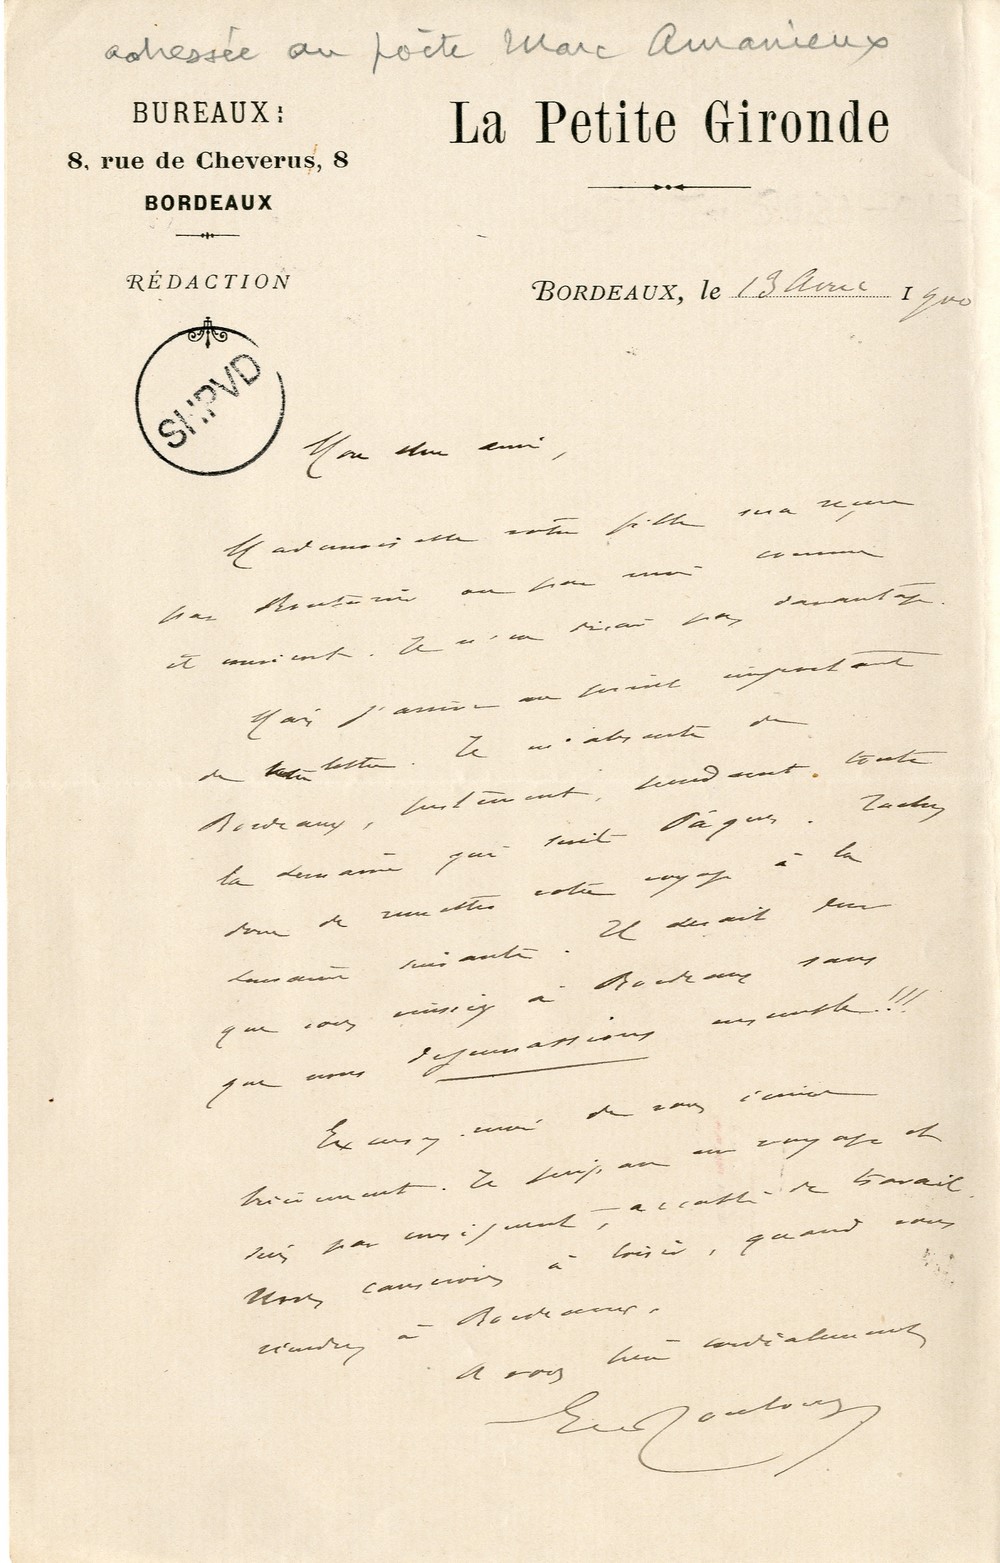 adressée au poëte Marc Amanieux
BUREAUX:
8, rue de Cheverus, 8
BORDEAUX
RÉDACTION
La Petite Gironde
BORDEAUX, le 13 Avril 1900
SHPVD
Mon cher ami,
Mademoiselle votre fille sera reçue
par ou par moi comme
il convient. Je n'en dirai pas davantage.
Mais j'arrive au point important
de votre lettre. Je m'absente de
Bordeaux, justement, pendant toute
la semaine qui suit Pâques. Tachez
donc de remettre votre voyage à la
semaine suivante. Il serait dur
que vous vinssiez à Bordeaux sans
que nous déjeunassions ensemble!!!
Excusez-moi de vous écrire
brièvement. Je prépare un voyage et
suis par conséquent, accablé de travail.
Nous causerons à loisir, quand vous
viendrez à Bordeaux.
A vous bien cordialement